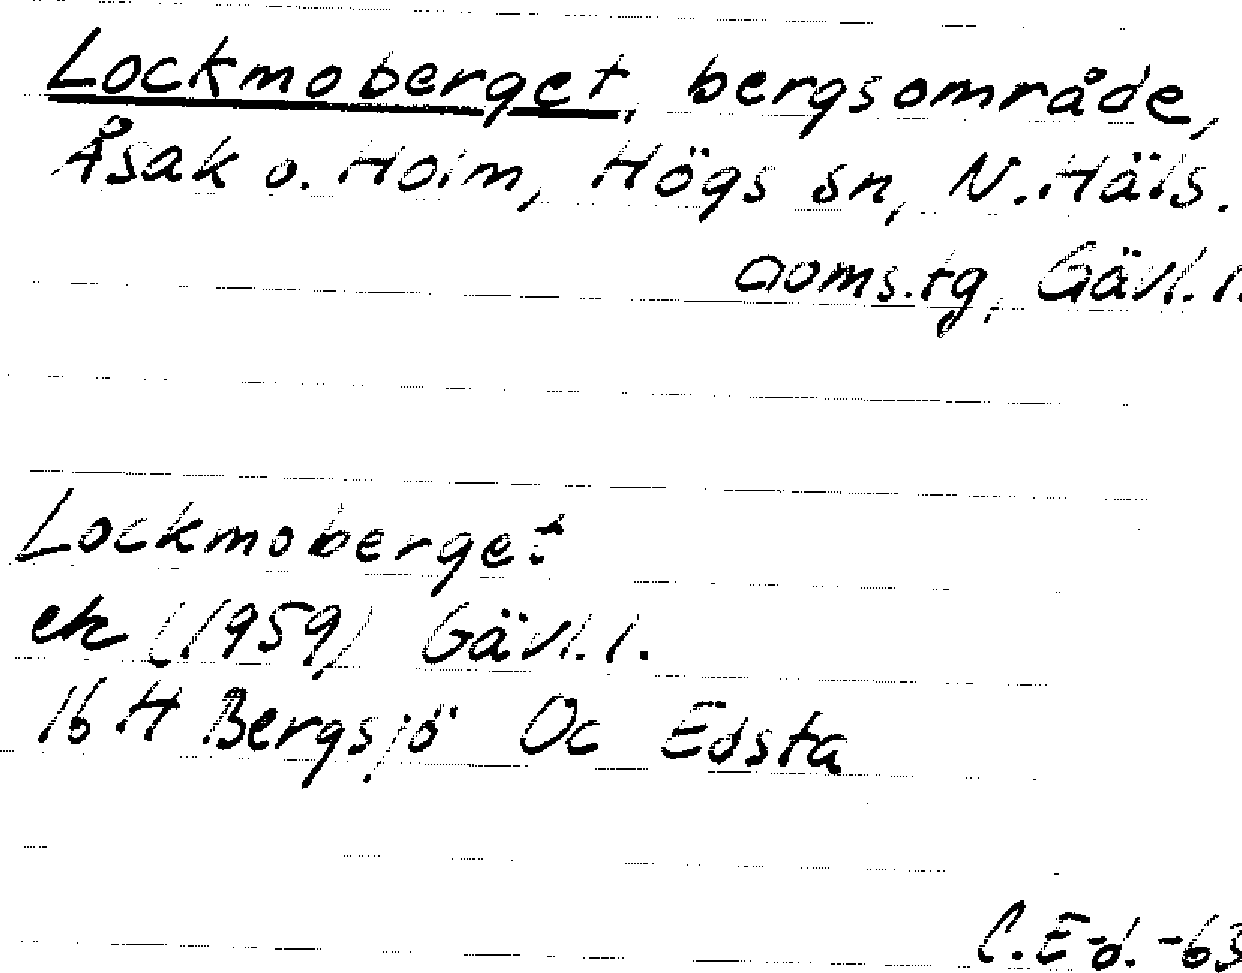 Lockmoberget, bergsområde,
Åsak o. Holm, Högs sn, N. Häls.
doms.tg, Gävl.l.
Lockmoberget
ek (1959) Gävl.l.
16 H Bergsjö Oc Edsta
C.E-d. -63